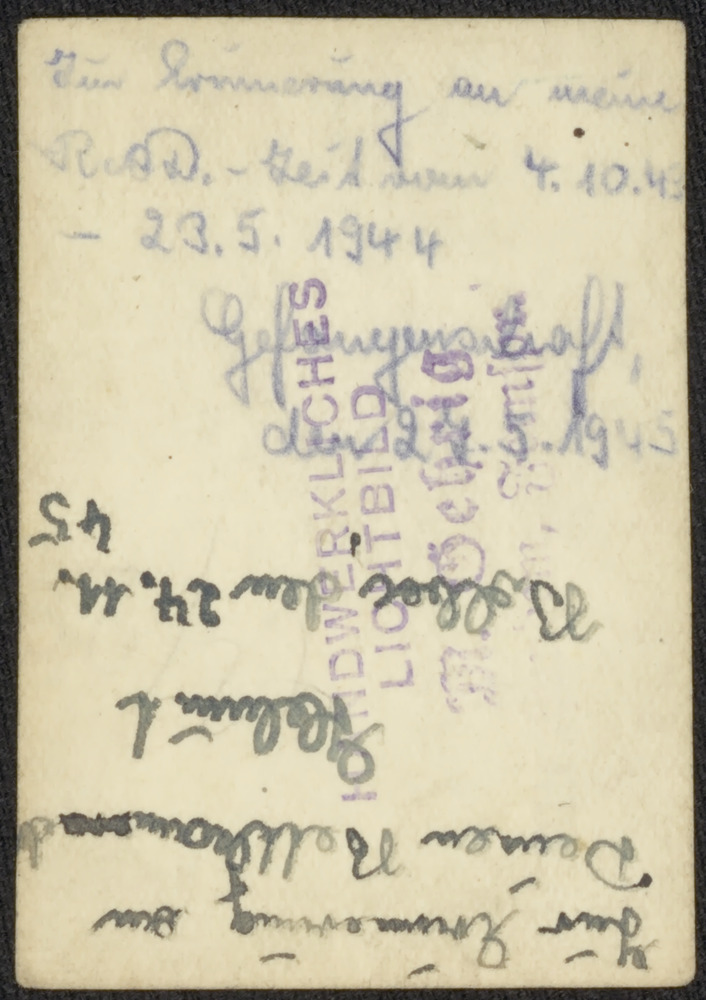 Zur Erinnerung an meine
R.A.D.-Zeit vom 4.10.43
- 23.5. 1944
Gefangenschaft,
den 27.5.1945
Zur Erinnerung an
Deinen Bettkamerad
Helmut
den 24. 11.
45
HANDWERKLICHES
LICHTBILD